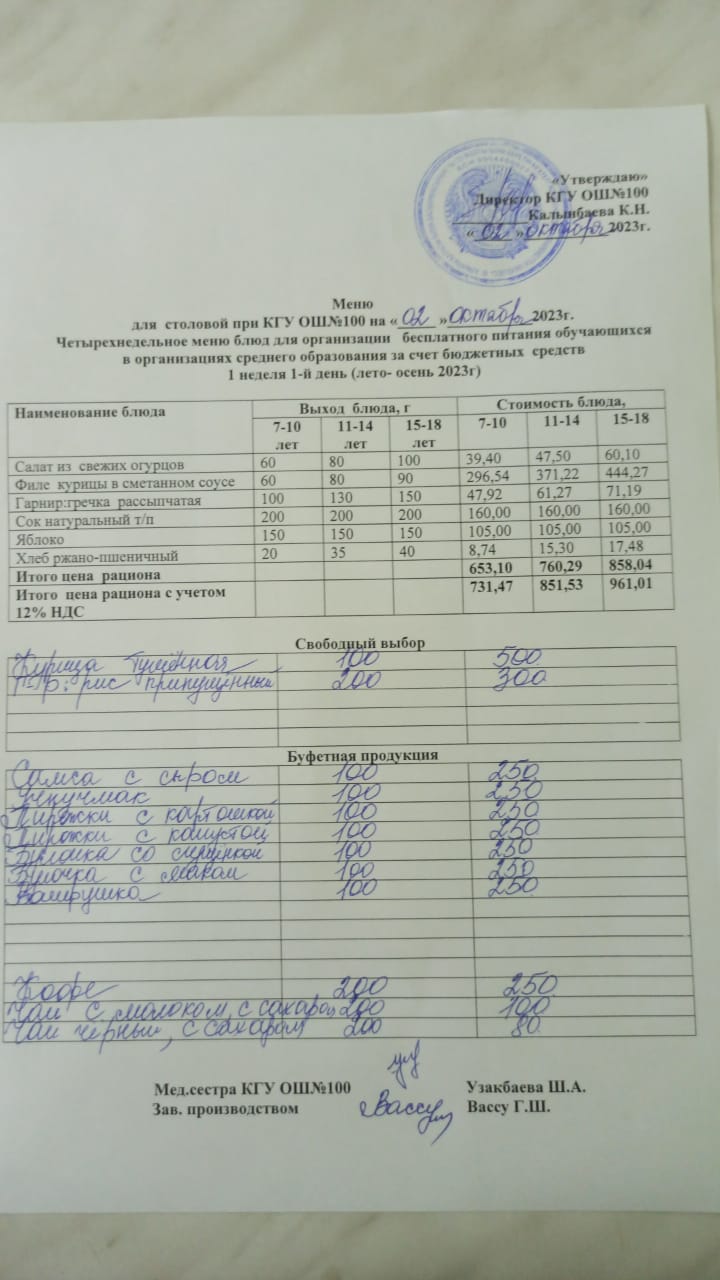 «Утверждаю»
Директор КГУ ОШ№100
Калынбаева К.Н.
« 02 » октября 2023г.
Меню
для столовой при КГУ ОШ№100 на « 02 » октября 2023г.
Четырехнедельное меню блюд для организации бесплатного питания обучающихся
в организациях среднего образования за счет бюджетных средств
1 неделя 1-й день (лето- осень 2023г)
Наименование блюда Выход блюда, г Стоимость блюда,
7-10 лет 11-14 лет 15-18 лет 7-10 11-14 15-18
Салат из свежих огурцов 60 80 100 39,40 47,50 60,10
Филе курицы в сметанном соусе 60 80 90 296,54 371,22 444,27
Гарнир:гречка рассыпчатая 100 130 150 47,92 61,27 71,19
Сок натуральный т/п 200 200 200 160,00 160,00 160,00
Яблоко 150 150 150 105,00 105,00 105,00
Хлеб ржано-пшеничный 20 35 40 8,74 15,30 17,48
Итого цена рациона 653,10 760,29 858,04
Итого цена рациона с учетом 731,47 851,53 961,01
12% НДС
Свободный выбор
Курица тушённая 100 500
Г-р: рис припущенный 200 300
Буфетная продукция
Самса с сыром 100 250
Учпучмак 100 250
Пирожки с картошкой 100 250
Пирожки с капустой 100 250
со сгущенкой 100 250
Булочка с маком 100 250
Ватрушка 100 250
Кофе 200 250
Чай с молоком, с сахаром 200 100
Чай черный, с сахаром 200 80
Мед.сестра КГУ ОШ№100 Узакбаева Ш.А.
Зав. производством Вассу Вассу Г.Ш.